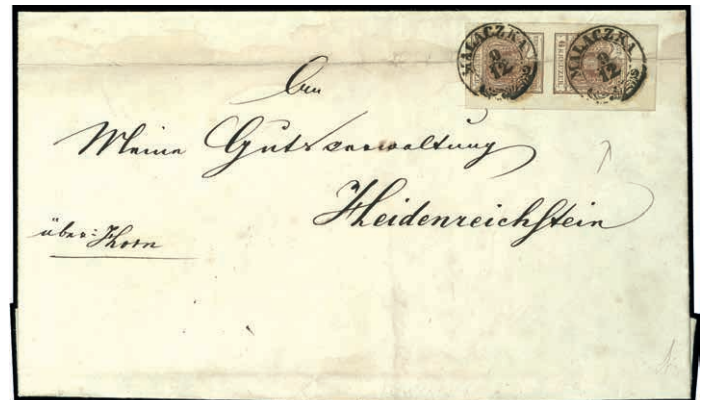 MALACZKA MALACZKA
9 9
12 12
An
Meine Gutsverwaltung
Heidenreichstein
über: Horn